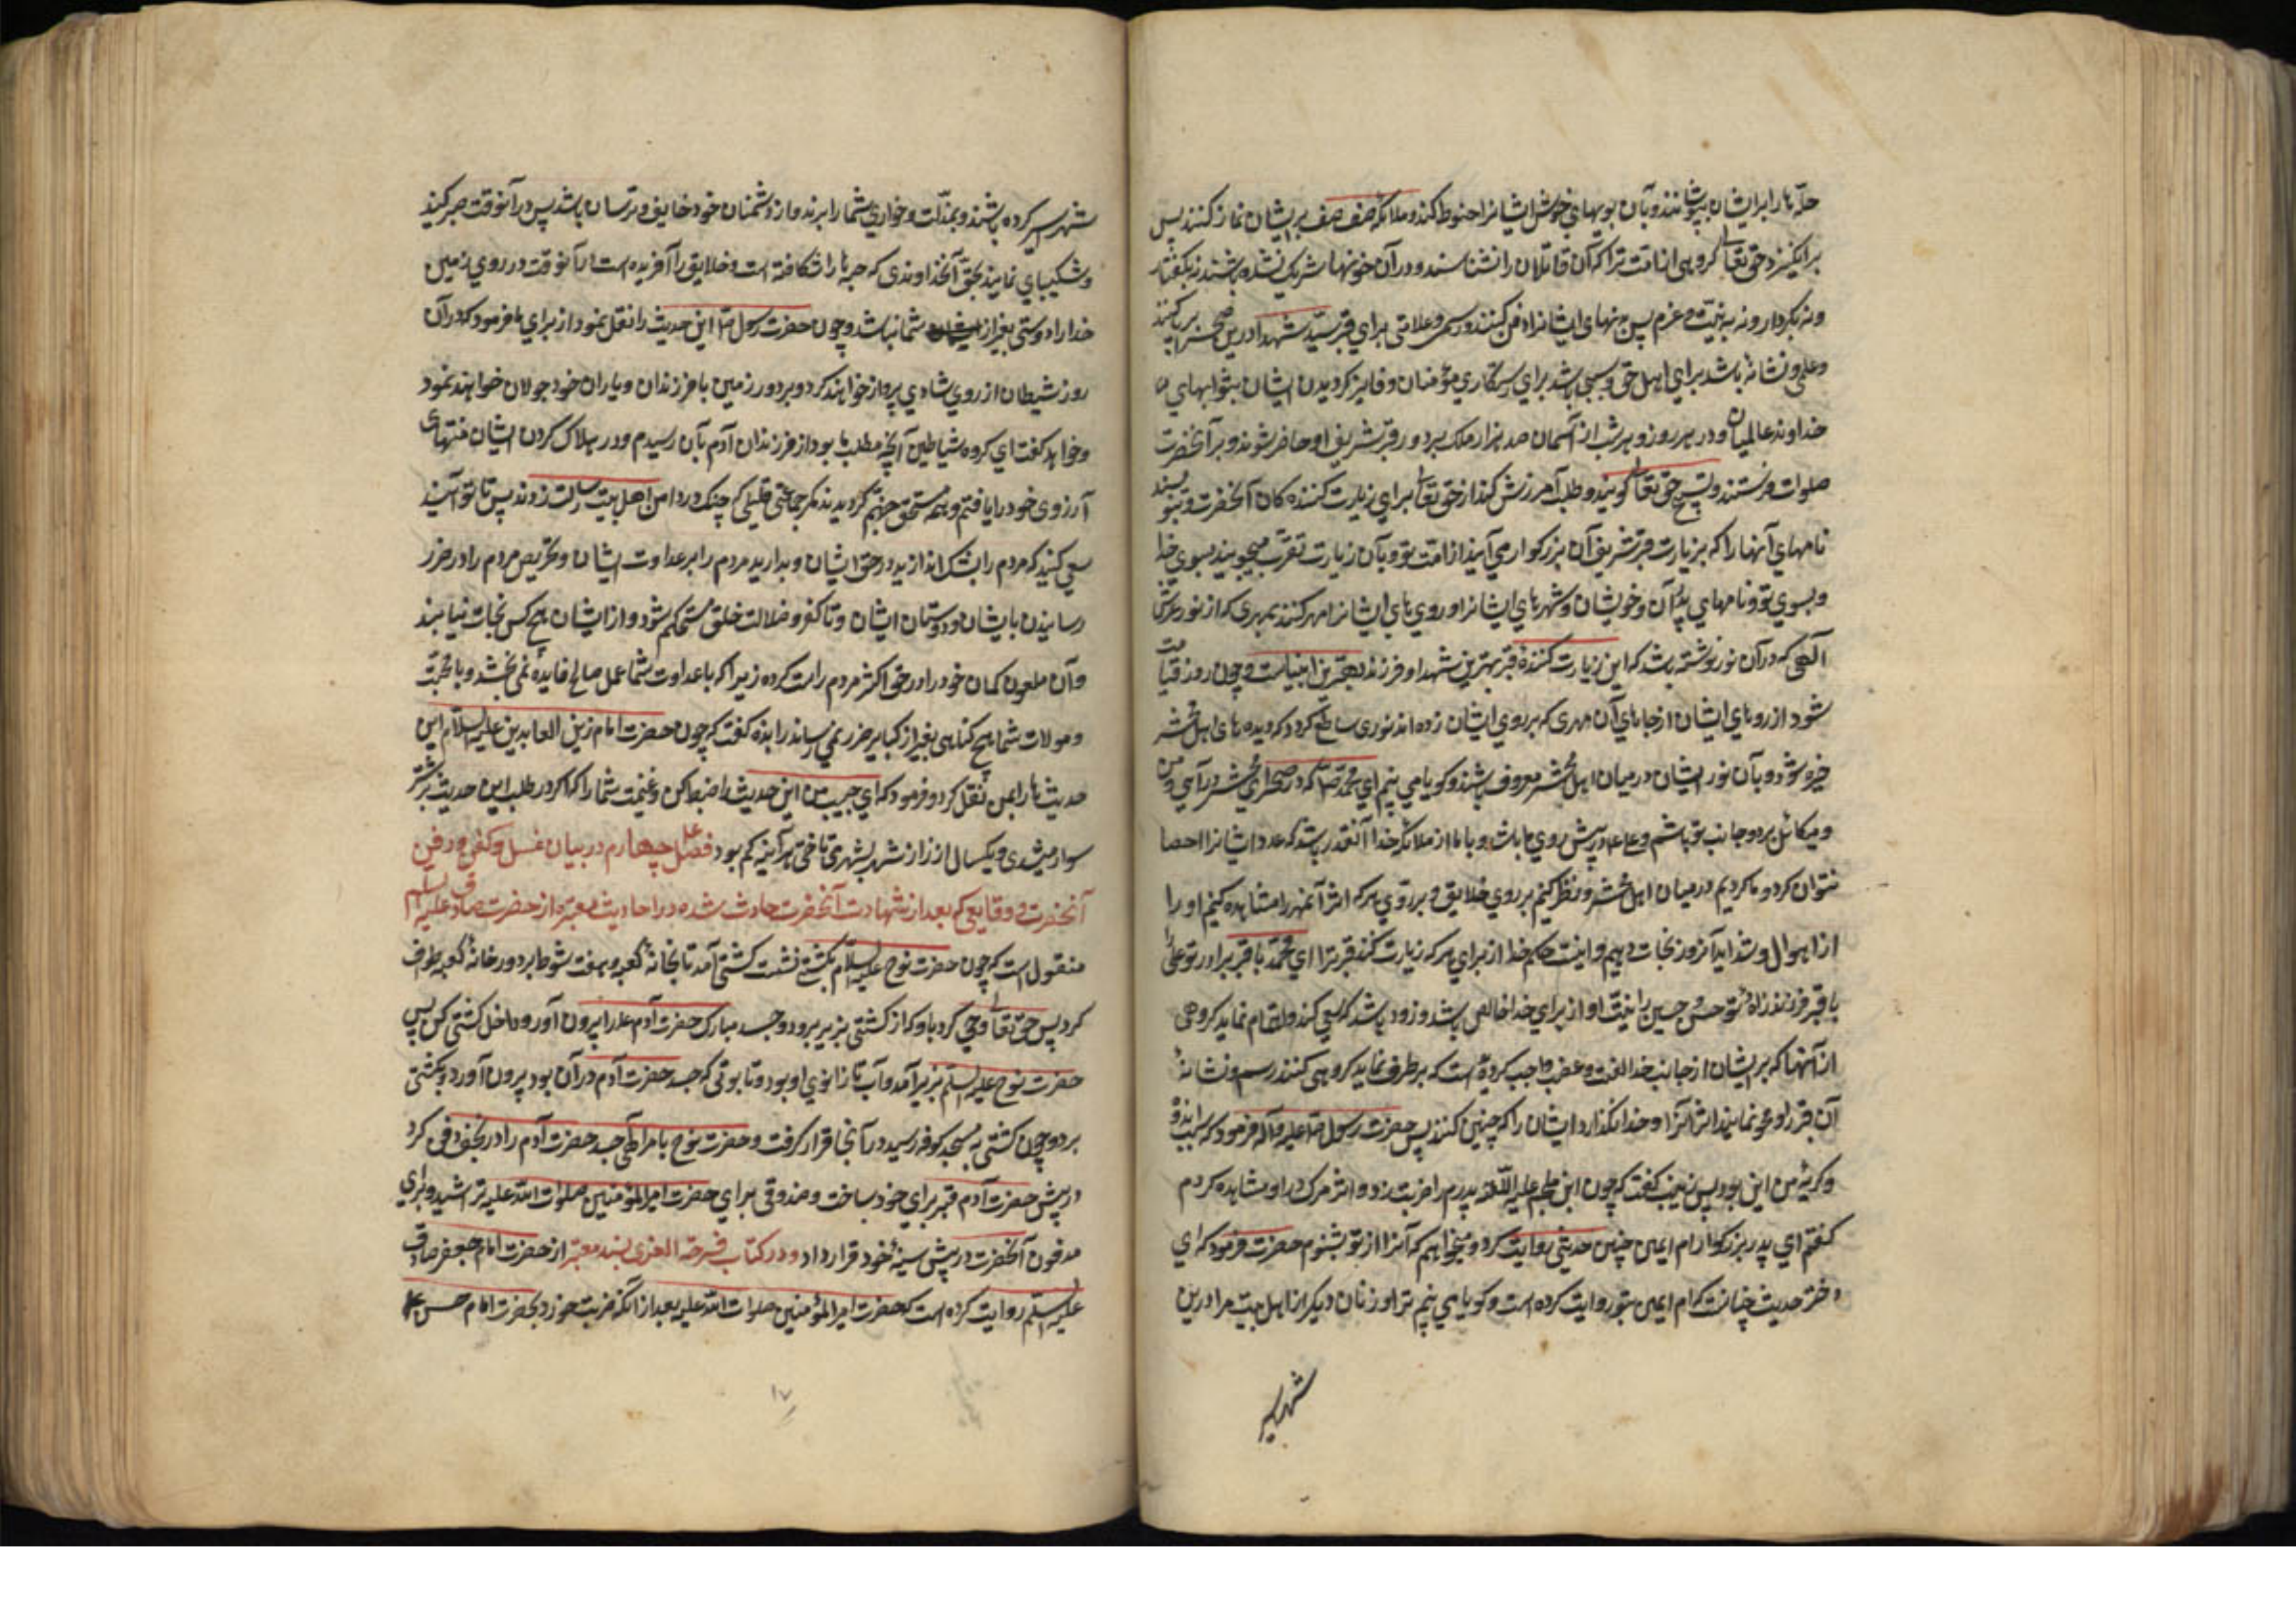 حلّه‌ها را بر ایشان بپوشانند و بآن بویهای خوش ایشانرا حنوط کنند و ملائکه صف صف بر ایشان نماز کنند پس
برانگیزد حق تعالی گروهی از امت ترا که آن قاتلان را نشناسند و در آن خونها شریک نشده باشند نه بگفتار
و نه بکردار و نه به نیت و عزم پس بدنهای ایشانرا دفن کنند و رسمی و علامتی برای قبر سید شهدا در این صحرا بر پا کنند
و علمی و نشانهٔ باشد برای اهل حق و سببی باشد برای رستگاری مؤمنان و فایز گردیدن ایشان بثوابهای
خداوند عالمیان و در هر روز و هر شب از آسمان صد هزار ملک بر دور قبر شریف او حاضر شوند و بر آنحضرت
صلوات فرستند و تسبیح حق تعالی گویند و طلب آمرزش کنند از حق تعالی برای زیارت کننده کان آنحضرت و بنویسند
نامهای آنها را که بزیارت قبر شریف آن بزرگوار می آیند از امت تو و بآن زیارت تقرب میجویند بسوی خدا
و بسوی تو و نامهای پدران و خویشان و شهرهای ایشانرا و رویهای ایشانرا مهر کنند بمهری که از نور عرش
آلهی که در آن نور نوشته باشد که این زیارت کنندهٔ قبر بهترین شهدا و فرزند بهترین انبیاست و چون روز قیامت
شود از روهای ایشان از جاهای آن مهری که بر روی ایشان زده اند نوری ساطع گردد که دیده های اهل محشر
خیره شود و بآن نور ایشان در میان اهل محشر معروف باشند و گویا می بینم ای محمد ص که در صحرای محشر در آیی و من
و میکائل بر دو جانب تو باشیم و علی در پیش روی ما باشد و با ما از ملائکه خدا آنقدر باشد که عدد ایشانرا احصا
نتوان کرد و ما گردیم در میان اهل محشر و نظر کنیم بر روی خلایق و بر روی هر که اثر آن مهر را مشاهده کنیم او را
از اهوال و شداید آنروز نجات دهیم و اینست حکم خدا از برای هر که زیارت کند قبر ترا ای محمد یا قبر برادر تو علی
یا قبر فرزندزاده تو حسن و حسین را نیت او از برای خدا خالص باشد و زود باشد که سعی کند و اهتمام نماید گروهی
از آنها که بر ایشان از جانب خدا لعنت و غضب واجب گردیده است که بر طرف نماید گروهی کنند رسم و نشانهٔ
آن قبر را و محو نمایند اثر آنرا و خدا نگذارد ایشان را که چنین کنند پس حضرت رسول ص علیه و آله فرمود که سبب اندوه
و گریهٔ من این بود پس زینب گفت که چون ابن ملجم علیه اللعنه پدرم را ضربت زد و اثر مرگ در او مشاهده کردم
گفتم ای پدر بزرگوار ام ایمن چنین حدیثی روایت کرد و میخواهم که آنرا از تو بشنوم حضرت فرمود که ای
دختر حدیث چنانست که ام ایمن بتو روایت کرده است و گویا می بینم ترا و زنان دیگر از اهل بیت مرا در این
شهر اسیر
شهر اسیر کرده باشند و بمذلت و خواری شما را برند و از دشمنان خود خایف و ترسان باشد پس در آنوقت صبر کنید
و شکیبای نمایند بحق آنخداوندی که حبه ها را شکافته است و خلایق را آفریده است در آنوقت در روی زمین
خدا را دوستی بغیر از شما نباشد و چون حضرت رسول ص این حدیث را نقل نمود از برای ما فرمود که در آن
روز شیطان از روی شادی پرواز خواهند کرد و بر دور زمین با فرزندان و یاران خود جولان خواهند نمود
و خواهد گفت ای گروه شیاطین آنچه مطلب ما بود از فرزندان آدم بآن رسیدم و در هلاک کردن ایشان منتهای
آرزوی خود را یافتم و همه مستحق جهنم گردیدند مگر جماعتی قلیلی که چنگ در دامن اهل بیت رسالت زدند پس تا توانید
سعی کنید که مردم را بشک اندازید در حق ایشان و بدارید مردم را بر عداوت ایشان و تحریص مردم را در ضرر
رسانیدن بایشان و دوستان ایشان و تا کفر و ضلالت خلق مستحکم شود و از ایشان هیچ کس نجات نیابند
و آن ملعون گمان خود را در حق اکثر مردم راست کرده زیرا که با عداوت شما عمل صالح فایدهٔ نمی بخشد و با محبت
و مولات شما هیچ گناهی بغیر از کبایر ضرر نمی رساند زایده گفت که چون حضرت امام زین العابدین علیه السلام این
حدیث را بمن نقل کرد و فرمود که ای حبیب من این حدیث را ضبط کن و غنیمت شما را که اگر در طلب این حدیث بر شتر
سوار میشدی و یکسال از راز شهر بشهری تاختی هر آینه کم بود فصل چهارم در بیان غسل و کفن و دفن
آنحضرت و وقایعی که بعد از شهادت آنحضرت حادث شده در احادیث معتبره از حضرت صادق علیه السلم
منقولست که چون حضرت نوح علیه السلام بکشتی نشست کشتی آمد تا بخانه کعبه و هفت شوط بر دور خانهٔ کعبه طواف
کرد پس حق تعالی وحی کرد باو که از کشتی بزیر برو و جسد مبارک حضرت آدم ع را بیرون آور و داخل کشتی کن پس
حضرت نوح علیه السلم بزیر آمد و آب تا زانوی او بود و تابوتی که جسد حضرت آدم در آن بود بیرون آورد و بکشتی
برد و چون کشتی به مسجد کوفه رسید در آنجا قرار گرفت و حضرت نوح بامر الهی جسد حضرت آدم را در نجف دفن کرد
در پیش حضرت آدم قبر برای خود ساخت و صندوقی برای حضرت امیرالمؤمنین صلوات الله علیه تراشید و برای
مدفون آنحضرت در پیش سینهٔ خود قرار داد و در کتاب فرحة الغری بسند معتبر از حضرت امام جعفر صادق
علیه السلم روایت کرده است که حضرت امیر المؤمنین صلوات الله علیه بعد از آنکه ضربت خورد بحضرت امام حسن ع
۱۷